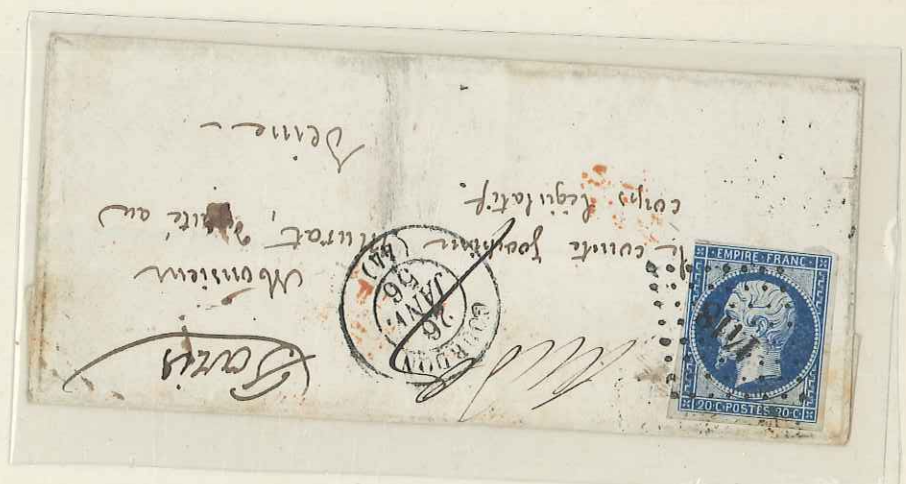 Paris
Monsieur
le comte Joachim Murat, député au
corps législatif.
Seine
GOURDON
26
JANV.
56
(44)
EMPIRE FRANC
20 C POSTES 20 C
1418